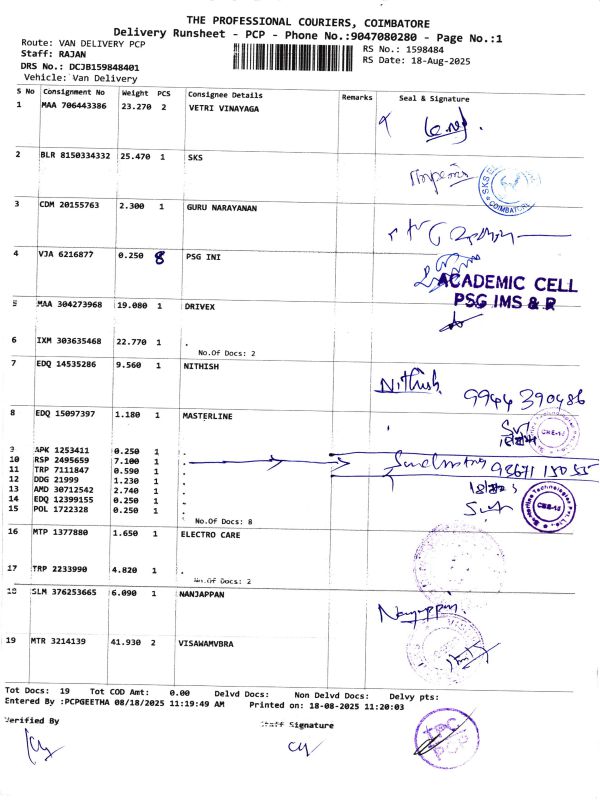 THE PROFESSIONAL COURIERS, COIMBATORE
Delivery Runsheet - PCP - Phone No.:9047080280 - Page No.:1
Route: VAN DELIVERY PCP
Staff: RAJAN
RS No.: 1598484
DRS No.: DCJB159848401
RS Date: 18-Aug-2025
Vehicle: Van Delivery
S No Consignment No Weight PCS Consignee Details Remarks Seal & Signature
1 MAA 706443386 23.270 2 VETRI VINAYAGA
2 BLR 8150334332 25.470 1 SKS
SKS
COIMBATORE
3 CDM 20155763 2.300 1 GURU NARAYANAN
4 VJA 6216877 0.250 8 PSG INI
ACADEMIC CELL
PSG IMS & R
5 MAA 304273968 19.080 1 DRIVEX
6 IXM 303635468 22.770 1 .
No.Of Docs: 2
7 EDQ 14535286 9.560 1 NITHISH
Nithish
9944 390486
8 EDQ 15097397 1.180 1 MASTERLINE
9 APK 1253411 0.250 1 .
10 RSP 2495659 7.100 1 .
11 TRP 7111847 0.590 1 .
12 DDG 21999 1.230 1 .
13 AMD 30712542 2.740 1 .
14 EDQ 12399155 0.250 1 .
15 POL 1722328 0.250 1 .
No.Of Docs: 8
16 MTP 1377880 1.650 1 ELECTRO CARE
17 TRP 2233990 4.820 1 .
No.Of Docs: 2
18 SLM 376253665 6.090 1 NANJAPPAN
Nanjappan
19 MTR 3214139 41.930 2 VISAWAMVBRA
Tot Docs: 19 Tot COD Amt: 0.00 Delvd Docs: Non Delvd Docs: Delvy pts:
Entered By :PCPGEETHA 08/18/2025 11:19:49 AM Printed on: 18-08-2025 11:20:03
Verified By
Staff Signature
TPC
PCP